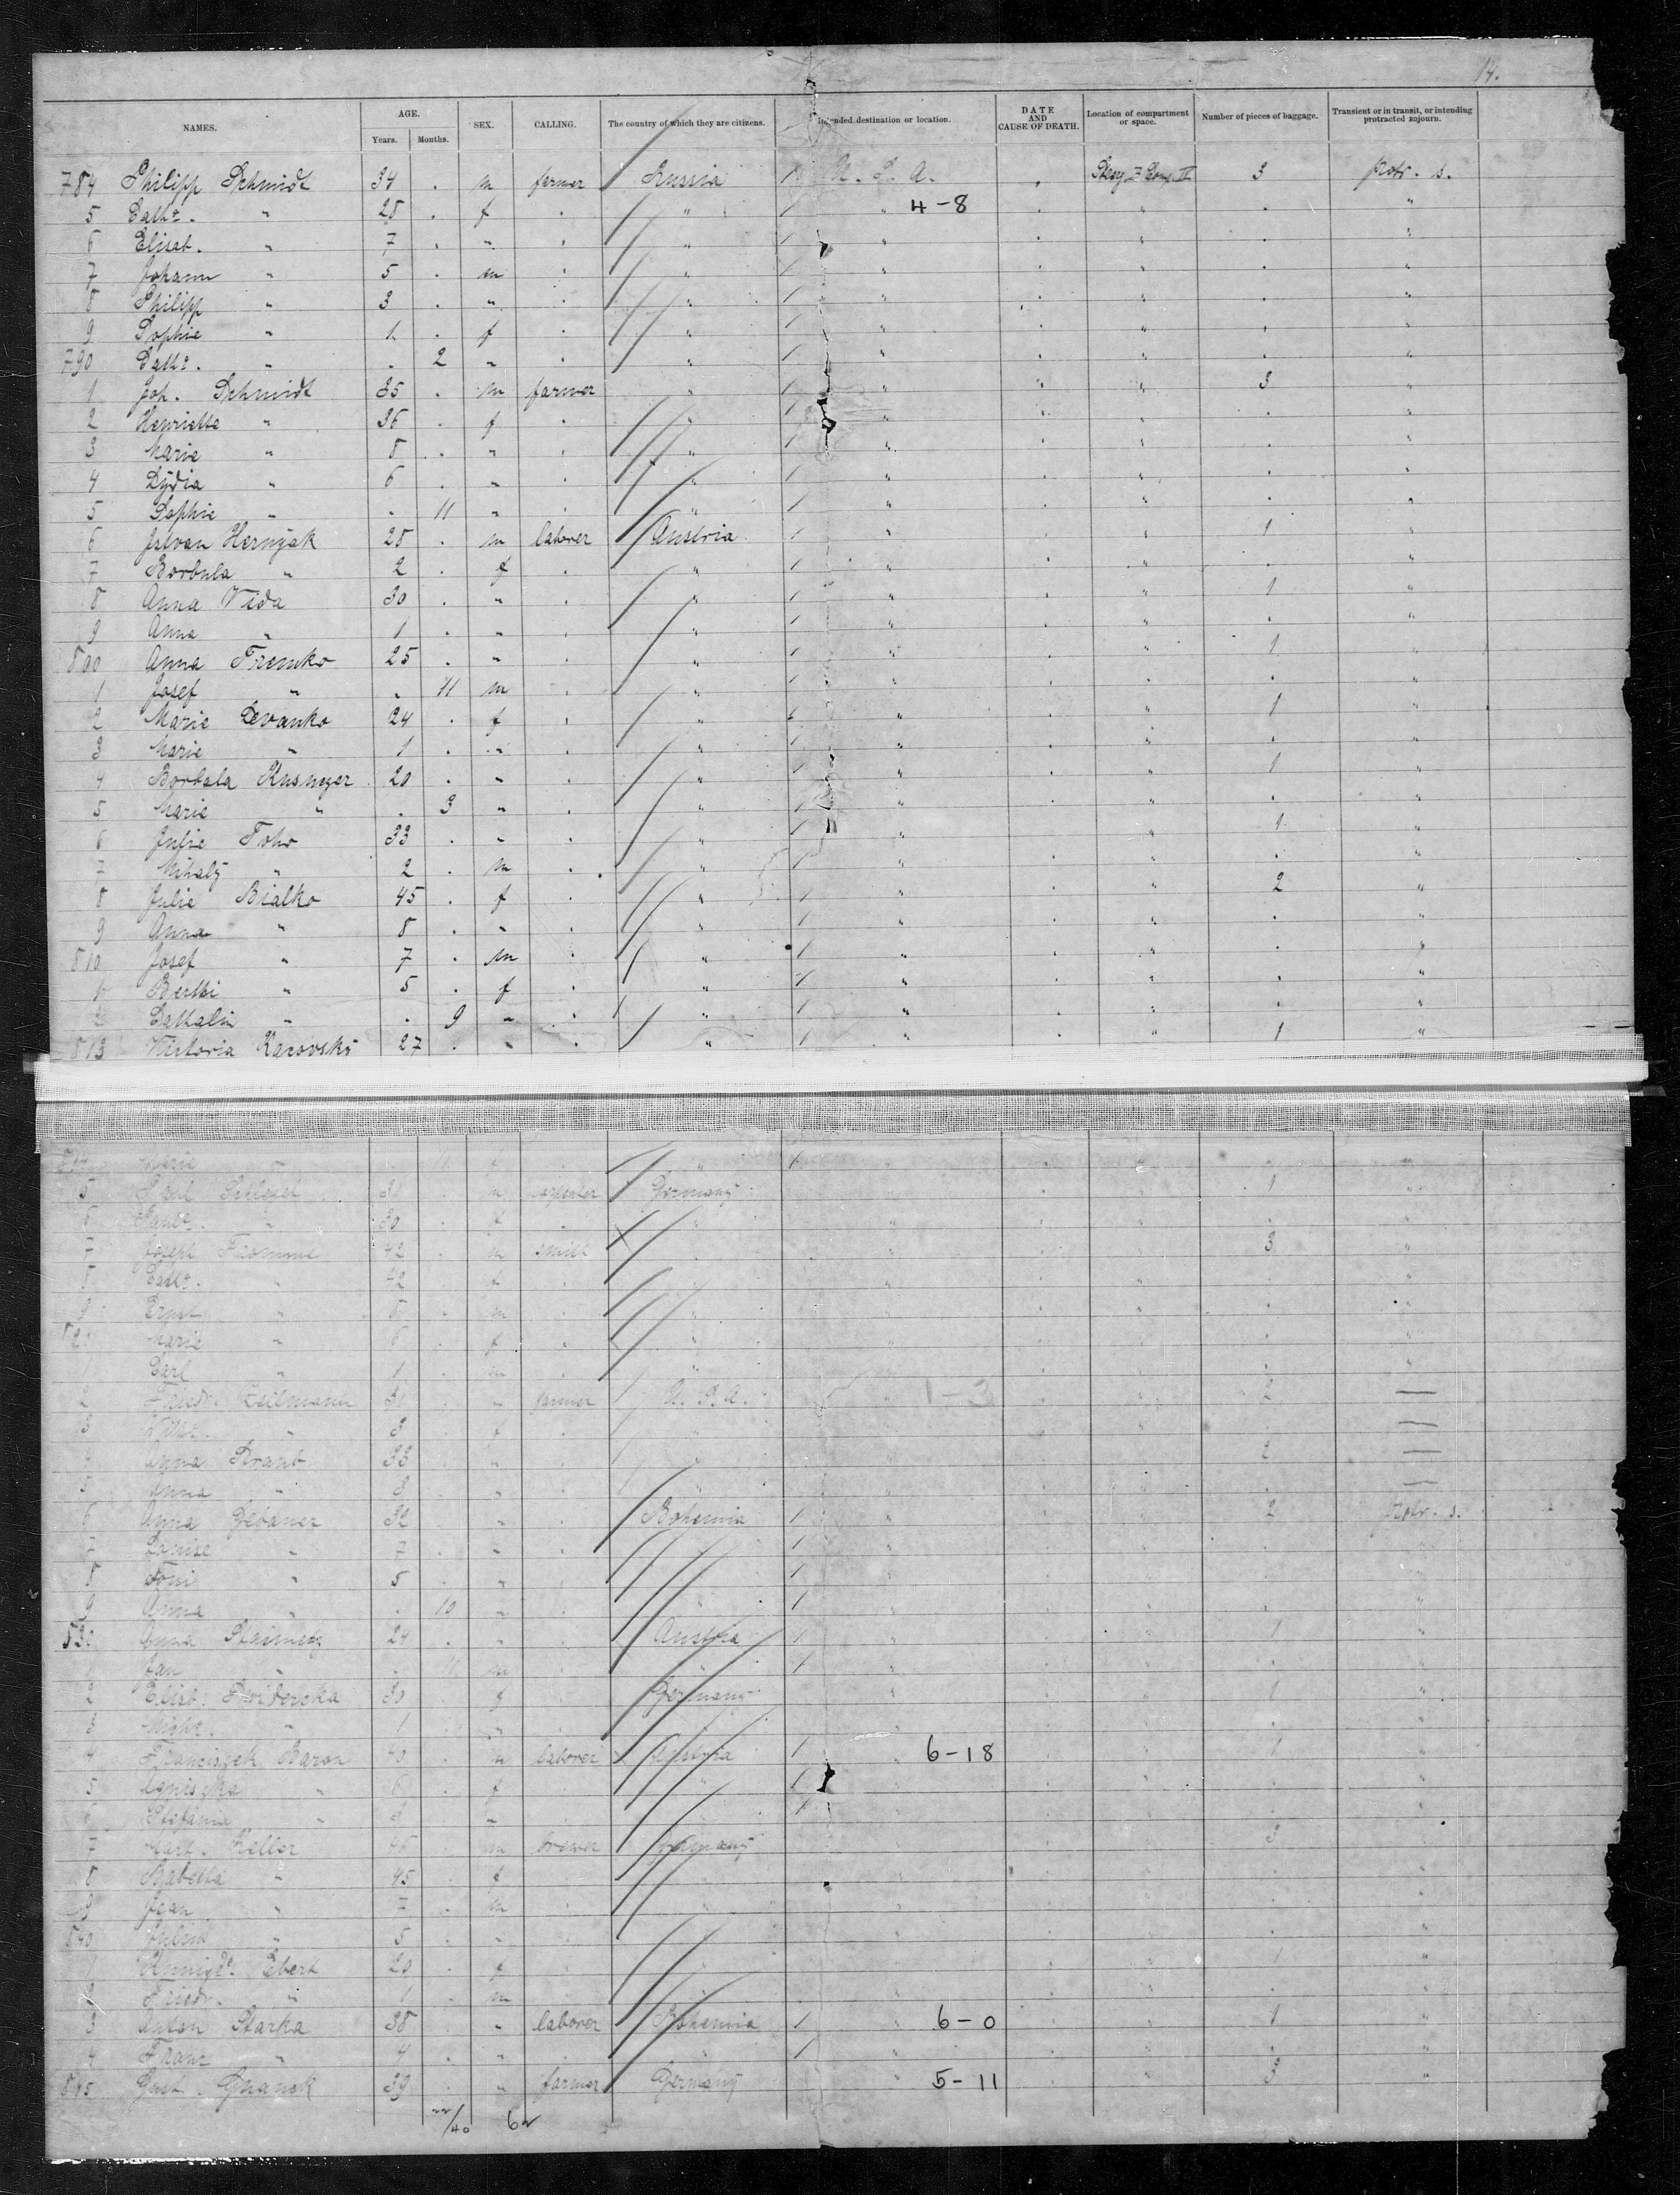 14.
NAMES. AGE. Years. Months. SEX. CALLING. The country of which they are citizens. Intended destination or location. DATE AND CAUSE OF DEATH. Location of compartment or space. Number of pieces of baggage. Transient or in transit, or intending protracted sojourn.
784 Philipp Schmidt 34 . m farmer Russia 1 U. S. A. . II 3 protr. s.
5 Cath. " 28 . f . " 1 " 4-8 . " . "
6 Elisab. " 7 . " . " 1 " . " . "
7 Johann " 5 . m . " 1 " . " . "
8 Philipp " 3 . " . " 1 " . " . "
9 Sophie " 1 . f . " 1 " . " . "
790 Cath. " . 2 " . " 1 " . " . "
1 Joh. Schmidt 35 . m farmer " 1 " . " 3 "
2 Henriette " 36 . f . " 1 " . " . "
3 Marie " 8 . " . " 1 " . " . "
4 Lydia " 6 . " . " 1 " . " . "
5 Sophie " . 11 " . " 1 " . " . "
6 Istvan Hernyak 28 . m laborer Austria 1 " . " 1 "
7 Borbula " 2 . f . " 1 " . " . "
8 Anna Vida 30 . " . " 1 " . " 1 "
9 Anna " 1 . " . " 1 " . " . "
800 Anna Fremko 25 . " . " 1 " . " 1 "
1 Josef " . 11 m . " 1 " . " . "
2 Marie Levanko 24 . f . " 1 " . " 1 "
3 Marie " 1 . " . " 1 " . " . "
4 Borbala Kusnyer 20 . " . " 1 " . " 1 "
5 Marie " . 3 " . " 1 " . " . "
6 Julie Toho 33 . " . " 1 " . " 1 "
7 Mihaly " 2 . m . " 1 " . " . "
8 Julie Bialko 45 . f . " 1 " . " 2 "
9 Anna " 8 . " . " 1 " . " . "
810 Josef " 7 . m . " 1 " . " . "
1 Berthi " 5 . f . " 1 " . " . "
2 Cathalin " . 9 " . " 1 " . " . "
813 Victoria Kazovski 27 . " . " 1 " . " 1 "
814 Marie " . f . " 1 . " . "
5 Paul 31 . m carpenter Germany . " 1 "
6 " 30 . f . " " . " . "
7 Joseph Fromme 42 . m smith " " . " 3 "
8 Cath. " 42 . f . " " . " . "
9 Ernst " 8 . m . " " . " . "
820 Marie " 6 . f . " " . " . "
1 Carl " 1 . m . " " . " . "
2 Friedr. Zeilmann 31 . " farmer U. S. A. " 1-3 . " 2 —
3 " 3 . f . " " . " . —
4 Anna Straub 33 . " . " " . " 2 —
5 Anna " 8 . " . " " . " . —
6 Anna 32 . " . Bohemia 1 " . " 2 protr. s.
7 Louise " 7 . " . " 1 " . " . "
8 Toni " 5 . " . " 1 " . " . "
9 Anna " . 10 " . " 1 " . " . "
830 Anna 24 . " . Austria 1 " . " 1 "
1 Jan " . 11 m . " 1 " . " . "
2 Elisb. Swiderska 30 . f . Germany " . " 1 "
3 " 1 . " . " " . " . "
4 Franciszek Baron 40 . m laborer Austria 1 " 6-18 . " 1 "
5 Agniszka " 6 . f . " 1 " . " . "
6 Stefania " . " . " 1 " . " . "
7 Keller 46 . m brewer Germany " . " 3 "
8 Babetta " 45 . f . " " . " . "
9 Jean " 7 . m . " " . " . "
840 " 5 . " . " " . " . "
1 Ebert 20 . f . " " . " 1 "
2 Friedr. " 1 . m . " " . " . "
3 Anton Starka 38 . " laborer Bohemia 1 " 6-0 . " 1 "
4 Franz " 4 . " . " 1 " . " . "
845 Gust. 39 . " farmer Germany " 5-11 . " 3 "
/40